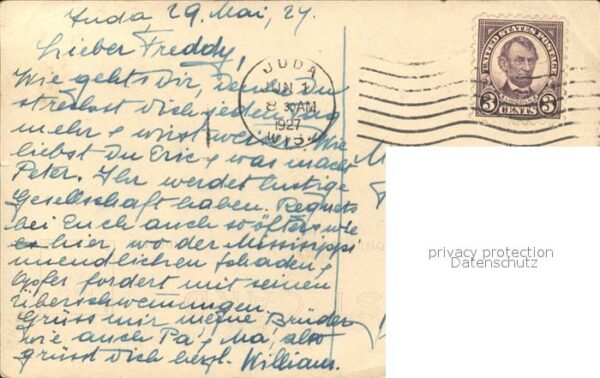 Juda, 29. Mai, 27.
Lieber Freddy,
Wie gehts Dir, denk Du
streckst Dich jeden Tag
mehr & wirst werden. Wie
liebst Du Eric & was macht
Peter. Ihr werdet lustige
Gesellschaft haben. Regnets
bei Euch auch so öfters wie
hier, wo der Mississippi
unendlichen Schaden &
Opfer fordert mit seinen
Überschwemmungen.
Grüss mir meine Brüder
wie auch Pa & Ma, also
grüsst Dich herzl. William.
JUDA
JUN 1
8 30 AM
1927
WIS.
UNITED STATES POSTAGE
LINCOLN
3 CENTS 3
privacy protection
Datenschutz